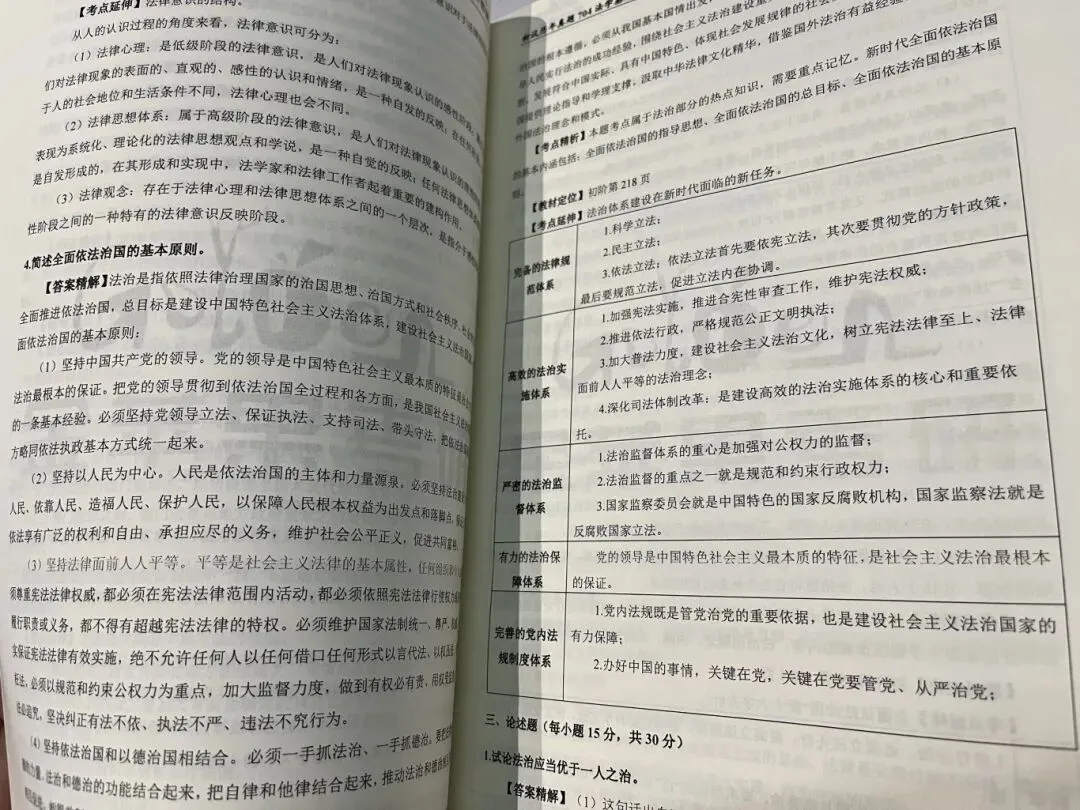 【考点延伸】法律意识的结构。
从人的认识过程的角度来看，法律意识可分为：
（1）法律心理：是低级阶段的法律意识，是人们对法律现象认识的感性阶段，
们对法律现象的表面的、直观的、感性的认识和情绪，是一种自发的反映；
于人的社会地位和生活条件不同，法律心理也会不同。
（2）法律思想体系：属于高级阶段的法律意识，是人们对法律现象认识的
表现为系统化、理论化的法律思想观点和学说，是一种自觉的反映，任何法律思想
是自发形成的，在其形成和实现中，法学家和法律工作者起着重要的建构作用。
（3）法律观念：存在于法律心理和法律思想体系之间的一个层次，是指介于
性阶段之间的一种特有的法律意识反映阶段。
4.简述全面依法治国的基本原则。
【答案精解】法治是指依照法律治理国家的治国思想、治国方式和社会秩序。
全面推进依法治国，总目标是建设中国特色社会主义法治体系，建设社会主义法治国家。
面依法治国的基本原则：
（1）坚持中国共产党的领导。党的领导是中国特色社会主义最本质的特征
法治最根本的保证。把党的领导贯彻到依法治国全过程和各方面，是我国社会主义
的一条基本经验。必须坚持党领导立法、保证执法、支持司法、带头守法，把依法
方略同依法执政基本方式统一起来。
（2）坚持以人民为中心。人民是依法治国的主体和力量源泉，必须坚持法治
人民、依靠人民、造福人民、保护人民，以保障人民根本权益为出发点和落脚点，
依法享有广泛的权利和自由、承担应尽的义务，维护社会公平正义，促进共同富裕。
（3）坚持法律面前人人平等。平等是社会主义法律的基本属性，任何组织和个人
须尊重宪法法律权威，都必须在宪法法律范围内活动，都必须依照宪法法律行使权力
履行职责或义务，都不得有超越宪法法律的特权。必须维护国家法制统一、尊严、
实保证宪法法律有效实施，绝不允许任何人以任何借口任何形式以言代法、以权压法、
枉法，必须以规范和约束公权力为重点，加大监督力度，做到有权必有责、用权受
法必追究，坚决纠正有法不依、执法不严、违法不究行为。
（4）坚持依法治国和以德治国相结合。必须一手抓法治、一手抓德治，
法治和德治的功能结合起来，把自律和他律结合起来，推动法治和德治
初试历年真题704法学
治国的根本遵循，必须从我国基本国情出发
导人民实行法治的成功经验，围绕社会主义法治建设重
题，发展符合中国实际、具有中国特色、体现社会发展规律的社会
国提供理论指导和学理支撑，汲取中华法律文化精华，借鉴国外法治有益经验
外国法治理念和模式。
【考点精析】本题考点属于法治部分的热点知识，需要重点记忆。新时代全面依法治国
的基本内涵包括：全面依法治国的指导思想、全面依法治国的总目标、全面依法治国的基本原
则。
【教材定位】初阶第218页
【考点延伸】法治体系建设在新时代面临的新任务。
完备的法律规
范体系
1.科学立法；
2.民主立法；
3.依法立法：依法立法首先要依宪立法，其次要贯彻党的方针政策，
最后要规范立法，促进立法内在协调。
高效的法治实
施体系
1.加强宪法实施，推进合宪性审查工作，维护宪法权威；
2.推进依法行政，严格规范公正文明执法；
3.加大普法力度，建设社会主义法治文化，树立宪法法律至上、法律
面前人人平等的法治理念；
4.深化司法体制改革：是建设高效的法治实施体系的核心和重要依
托。
严密的法治监
督体系
1.法治监督体系的重心是加强对公权力的监督；
2.法治监督的重点之一就是规范和约束行政权力；
3.国家监察委员会就是中国特色的国家反腐败机构，国家监察法就是
反腐败国家立法。
有力的法治保
障体系
党的领导是中国特色社会主义最本质的特征，是社会主义法治最根本
的保证。
完善的党内法
规制度体系
1.党内法规既是管党治党的重要依据，也是建设社会主义法治国家的
有力保障；
2.办好中国的事情，关键在党，关键在党要管党、从严治党；
三、论述题（每小题15分，共30分）
1.试论法治应当优于一人之治。
【答案精解】（1）这句话出自